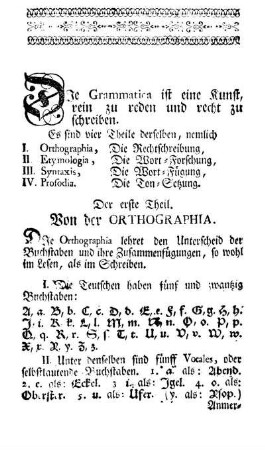 Die Grammatica ist eine Kunst,
rein zu reden und recht zu
schreiben.
Es sind vier Theile derselben, nemlich
I. Orthographia, Die Rechtschreibung,
II. Etymologia, Die Wort-Forschung,
III. Syntaxis, Die Wort-Fügung,
IV. Prosodia. Die Ton-Setzung.
Der erste Theil.
Von der ORTHOGRAPHIA.
Die Orthographia lehret den Unterscheid der
Buchstaben und ihre Zusammenfügungen, so wohl
im Lesen, als im Schreiben.
I. Die Teutschen haben fünf und zwantzig
Buchstaben:
A, a. B, b. C, c. D, d. E, e. F, f. G, g. H, h.
J, i. K, k. L, l. M, m. N, n. O, o. P, p.
Q, q. R, r. S, s. T, t. U, u. V, v. W, w.
X, x. Y, y. Z, z.
II. Unter denselben sind fünff Vocales, oder
selbstlautende Buchstaben. 1. a als: Abend.
2. e. als: Eckel. 3 i. als: Igel. 4. o. als:
Oberster. 5. u. als: Ufer. (y. als: Ysop.)
Anmer-